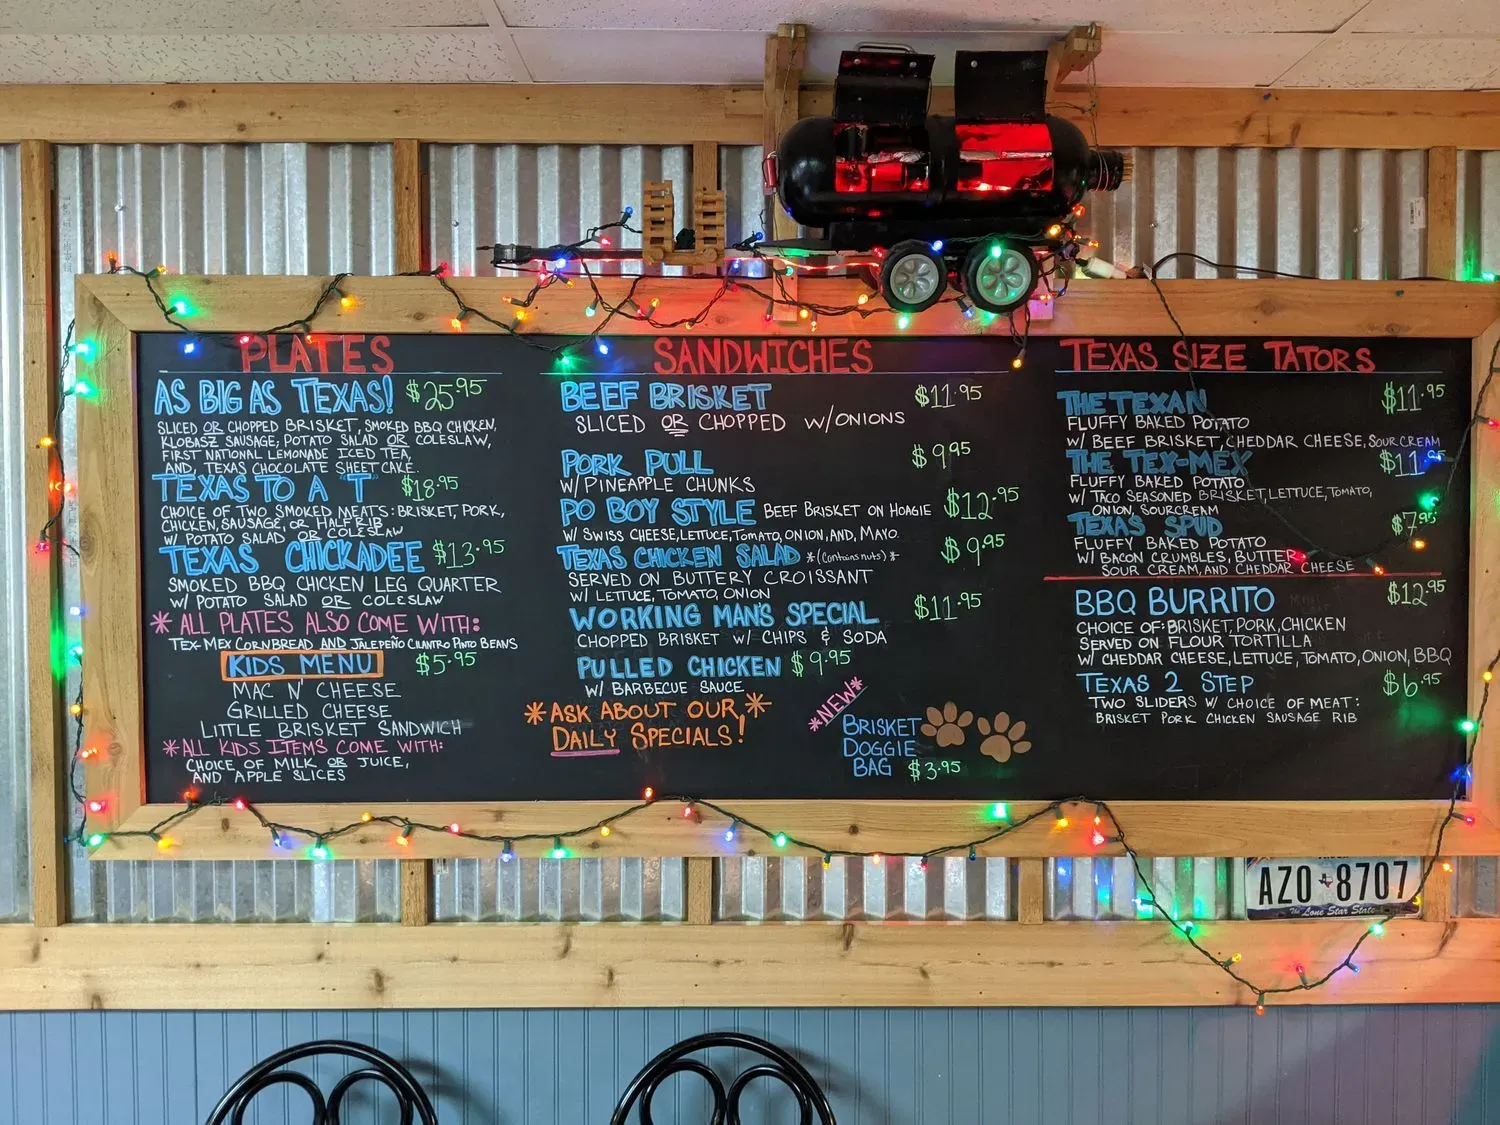 PLATES
AS BIG AS TEXAS! $25.95
SLICED OR CHOPPED BRISKET, SMOKED BBQ CHICKEN,
KLOBASZ SAUSAGE, POTATO SALAD OR COLESLAW,
FIRST NATIONAL LEMONADE ICED TEA,
AND, TEXAS CHOCOLATE SHEET CAKE.
TEXAS TO A "T" $18.95
CHOICE OF TWO SMOKED MEATS: BRISKET, PORK,
CHICKEN, SAUSAGE, OR HALF RIB
W/ POTATO SALAD OR COLESLAW
TEXAS CHICKADEE $13.95
SMOKED BBQ CHICKEN LEG QUARTER
W/ POTATO SALAD OR COLESLAW
*ALL PLATES ALSO COME WITH:
TEX-MEX CORNBREAD AND JALEPEÑO CILANTRO PINTO BEANS
KIDS MENU $5.95
MAC N' CHEESE
GRILLED CHEESE
LITTLE BRISKET SANDWICH
*ALL KIDS ITEMS COME WITH:
CHOICE OF MILK OR JUICE,
AND APPLE SLICES
SANDWICHES
BEEF BRISKET $11.95
SLICED OR CHOPPED W/ONIONS
PORK PULL $9.95
W/PINEAPPLE CHUNKS
PO BOY STYLE BEEF BRISKET ON HOAGIE $12.95
W/ SWISS CHEESE, LETTUCE, TOMATO, ONION, AND, MAYO.
TEXAS CHICKEN SALAD *(Contains nuts)* $9.95
SERVED ON BUTTERY CROISSANT
W/ LETTUCE, TOMATO, ONION
WORKING MAN'S SPECIAL $11.95
CHOPPED BRISKET W/ CHIPS & SODA
PULLED CHICKEN $9.95
W/ BARBECUE SAUCE
*ASK ABOUT OUR*
DAILY SPECIALS!
*NEW*
BRISKET
DOGGIE
BAG $3.95
TEXAS SIZE TATORS
THE TEXAN $11.95
FLUFFY BAKED POTATO
W/ BEEF BRISKET, CHEDDAR CHEESE, SOUR CREAM
THE TEX-MEX $11.95
FLUFFY BAKED POTATO
W/ TACO SEASONED BRISKET, LETTUCE, TOMATO,
ONION, SOURCREAM
TEXAS SPUD $7.95
FLUFFY BAKED POTATO
W/ BACON CRUMBLES, BUTTER
SOUR CREAM, AND CHEDDAR CHEESE
BBQ BURRITO $12.95
CHOICE OF: BRISKET, PORK, CHICKEN
SERVED ON FLOUR TORTILLA
W/ CHEDDAR CHEESE, LETTUCE, TOMATO, ONION, BBQ
TEXAS 2 STEP $6.95
TWO SLIDERS W/ CHOICE OF MEAT:
BRISKET PORK CHICKEN SAUSAGE RIB
AZ0 8707
The Lone Star State